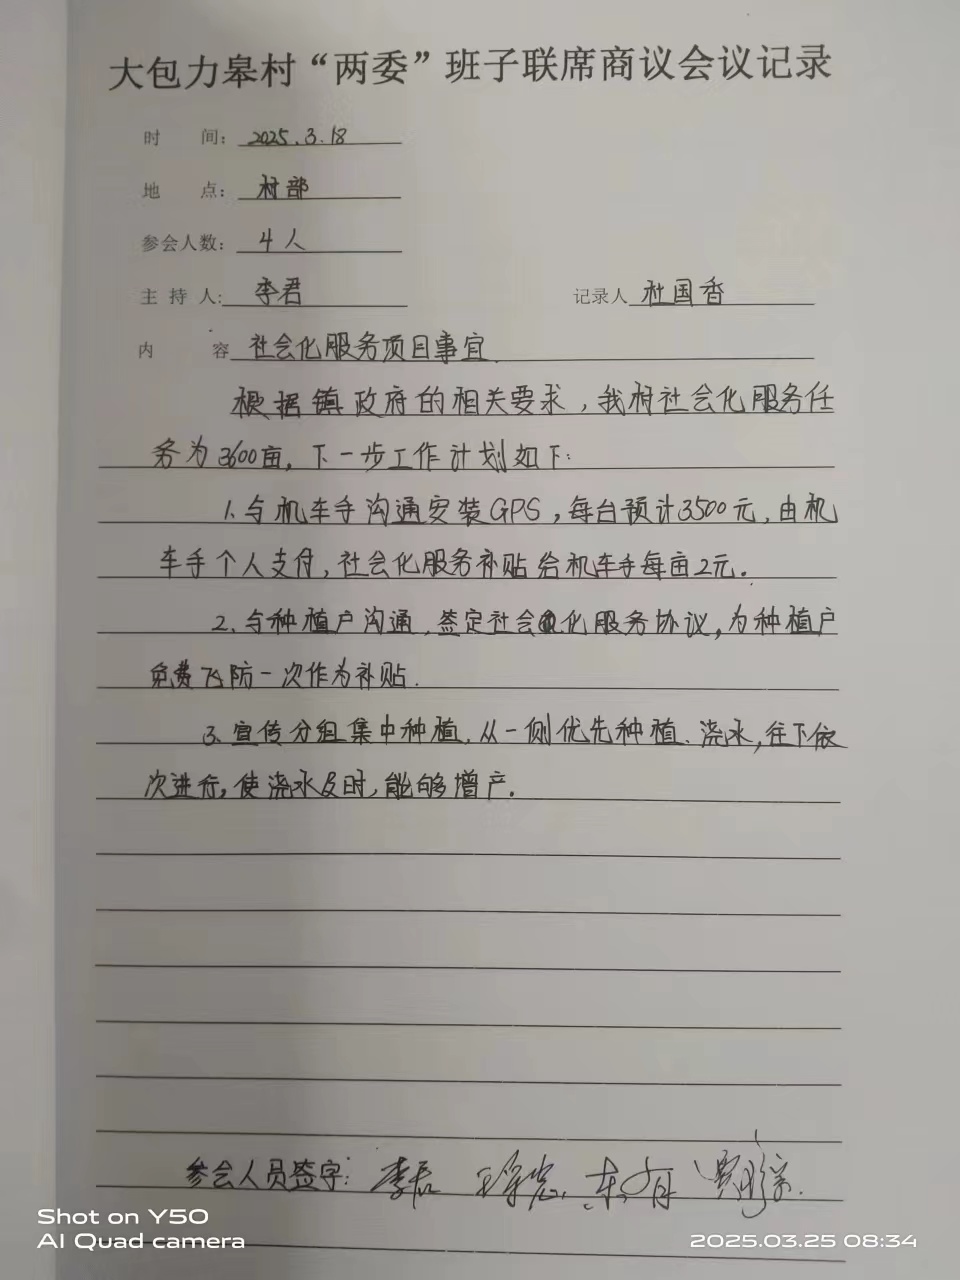 大包力皋村“两委”班子联席商议会议记录
时 间: 2025.3.18
地 点: 村部
参会人数: 4人
主 持 人: 李君 记录人 杜国香
内 容 社会化服务项目事宜
根据镇政府的相关要求,我村社会化服务任
务为3600亩,下一步工作计划如下:
1.与机车手沟通安装GPS,每台预计3500元,由机
车手个人支付,社会化服务补贴给机车手每亩2元.
2.与种植户沟通,签定社会化服务协议,为种植户
免费飞防一次作为补贴.
3.宣传分组集中种植,从一侧优先种植、浇水,往下依
次进行,使浇水及时,能够增产.
参会人员签字: 李君
Shot on Y50
AI Quad camera
2025.03.25 08:34